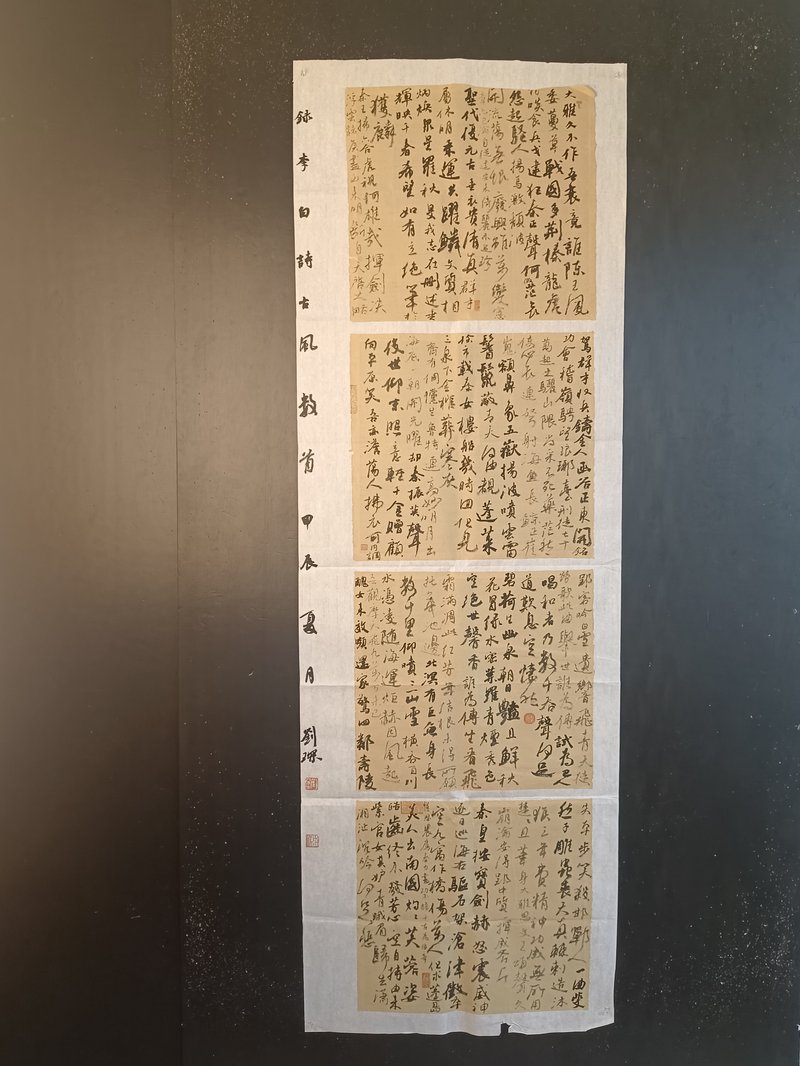 大雅久不作吾衰竟誰陳王風
委蔓草戰國多荊榛龍虎
相啖食兵戈逮狂秦正聲何微茫哀
怨起騷人揚馬激頹波
開流蕩無垠廢興雖萬變憲
章亦已淪自從建安來綺麗不足珍
聖代復元古垂衣貴清真群才
屬休明乘運共躍鱗文質相
炳煥眾星羅秋旻我志在刪述垂
輝映千春希聖如有立絕筆於
獲麟
秦王掃六合虎視何雄哉揮劍決
浮雲諸侯盡西來明斷自天啟大略
駕群才收兵鑄金人函谷正東開銘
功會稽嶺騁望琅琊臺刑徒七十
萬起土驪山隈尚采不死藥茫然
使心哀連弩射海魚長鯨正崔
嵬額鼻象五嶽揚波噴雲雷
鬐鬣蔽青天何由覩蓬萊
徐市載秦女樓船幾時回但見
三泉下金棺葬寒灰
齊有倜儻生魯連特高妙明月出
海底一朝開光曜却秦振英聲
後世仰末照意輕千金贈顧
向平原笑吾亦澹蕩人拂衣可同調
郢客吟白雪遺響飛青天徒
勞歌此曲舉世誰為傳試為巴人
唱和者乃數千吞聲何足
道歎息空悽然
碧荷生幽泉朝日艷且鮮秋
花冒綠水密葉羅青煙秀色
空絕世馨香誰為傳坐看飛
霜滿凋此紅芳年結根未得所願
托華池邊北溟有巨魚身長
數千里仰噴三山雪橫吞百川
水憑凌隨海運烜赫因風起
吾觀摩天飛九萬方未已
醜女來效顰還家驚四鄰壽陵
失本步笑殺邯鄲人一曲斐
然子雕蟲喪天真棘刺造沐
猴三年費精神功成無所用
楚楚且華身大雅思文王頌聲久
崩淪安得郢中質一揮成斧斤
秦皇按寶劍赫怒震威神
逐日巡海右驅石架滄津徵卒
空九寓作橋傷萬人但求蓬島
藥豈思農扈春力盡功不贍千載為悲辛
美人出南國灼灼芙蓉姿
皓齒終不發芳心空自持由來
紫宮女共妒青蛾眉歸去瀟
湘沚沉吟何足悲
錄李白詩古風數首甲辰夏月劉琛